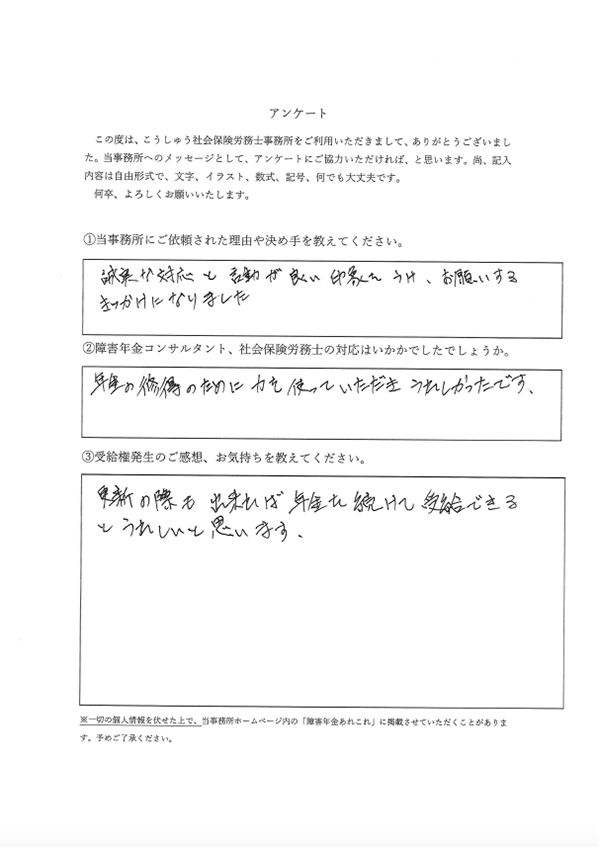 アンケート
この度は、こうしゅう社会保険労務士事務所をご利用いただきまして、ありがとうございまし
た。当事務所へのメッセージとして、アンケートにご協力いただければ、と思います。尚、記入
内容は自由形式で、文字、イラスト、数式、記号、何でも大丈夫です。
何卒、よろしくお願いいたします。
①当事務所にご依頼された理由や決め手を教えてください。
誠実な対応と言動が良い印象をうけ、お願いする
きっかけになりました
②障害年金コンサルタント、社会保険労務士の対応はいかかでしたでしょうか。
年金の修得のために力を使っていただきうれしかったです、
③受給権発生のご感想、お気持ちを教えてください。
更新の際も出来れば年金を続けて受給できる
とうれしいと思います、
※一切の個人情報を伏せた上で、当事務所ホームページ内の「障害年金あれこれ」に掲載させていただくことがありま
す。予めご了承ください。